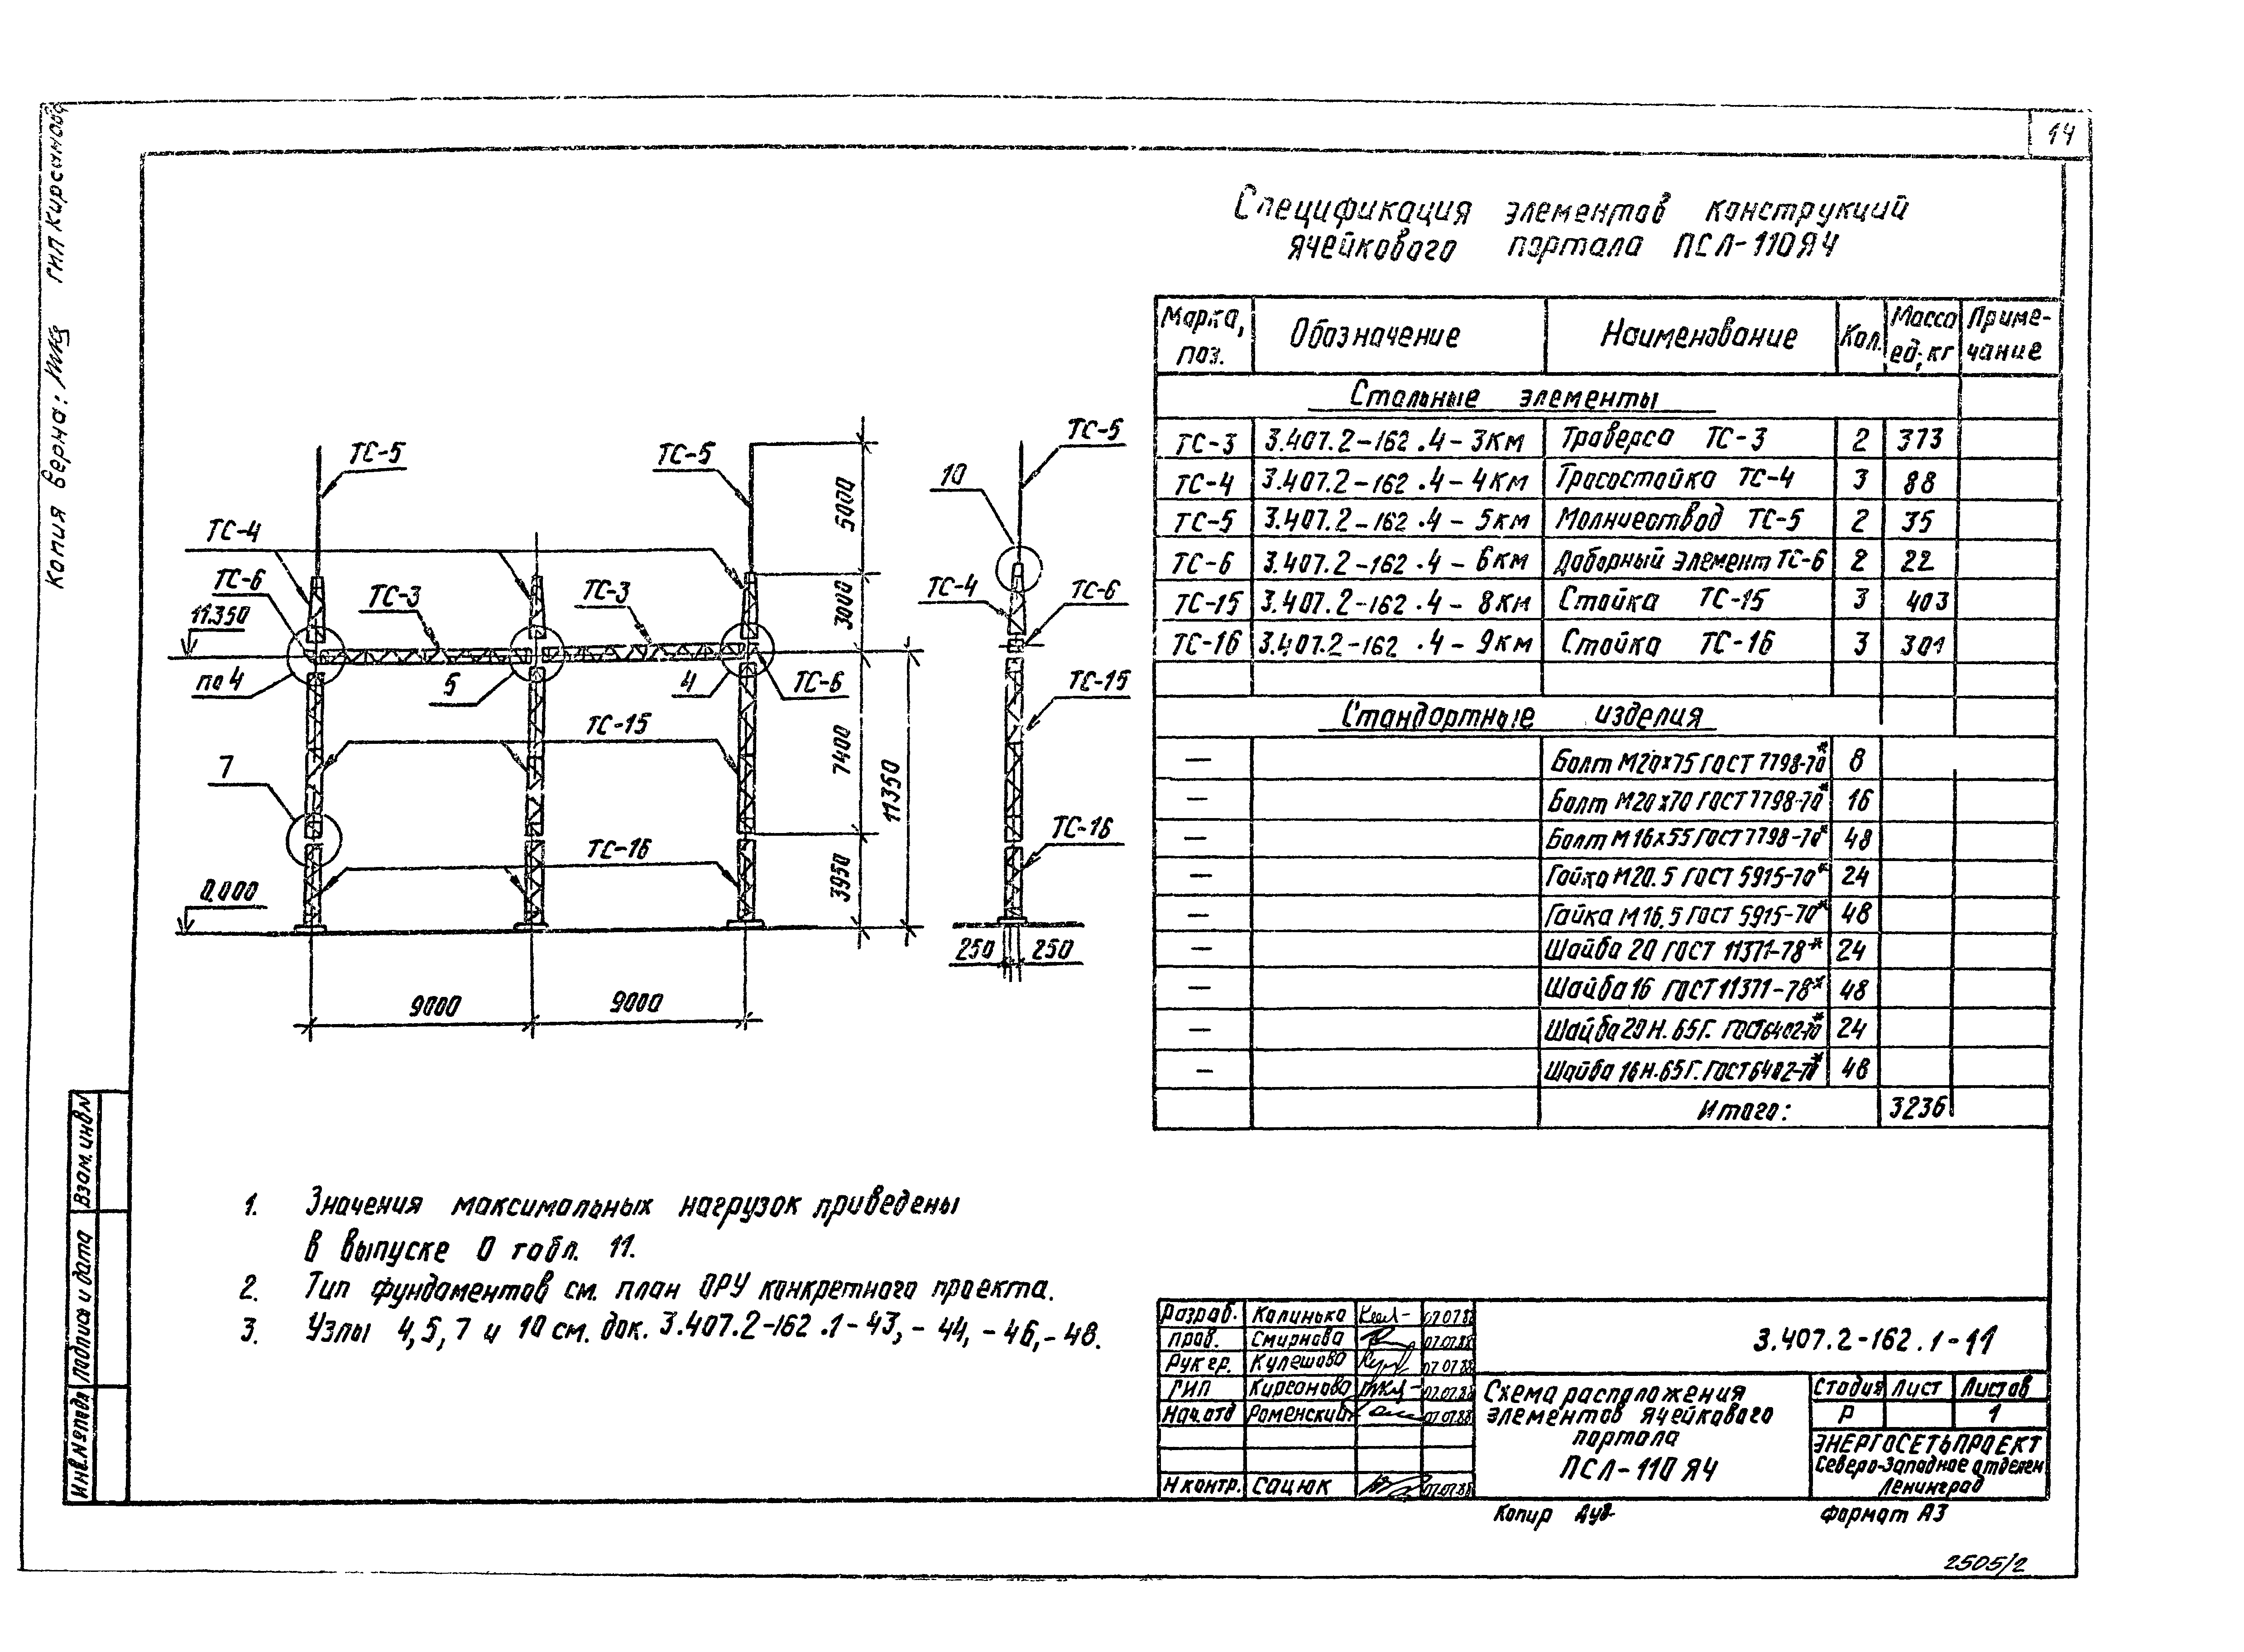 14
Копия верна: ГИП Кирсанова
Спецификация элементов конструкций
ячейкового портала ПСЛ-110Я4
Марка, поз. Обозначение Наименование Кол. Масса ед., кг Приме-чание
Стальные элементы
ТС-3 3.407.2-162.4-3КМ Траверса ТС-3 2 373
ТС-4 3.407.2-162.4-4КМ Тросостойка ТС-4 3 88
ТС-5 3.407.2-162.4-5КМ Молниеотвод ТС-5 2 35
ТС-6 3.407.2-162.4-6КМ Доборный элемент ТС-6 2 22
ТС-15 3.407.2-162.4-8КМ Стойка ТС-15 3 403
ТС-16 3.407.2-162.4-9КМ Стойка ТС-16 3 301
Стандартные изделия
— Болт М20х75 ГОСТ 7798-70* 8
— Болт М20х70 ГОСТ 7798-70* 16
— Болт М16х55 ГОСТ 7798-70* 48
— Гайка М20.5 ГОСТ 5915-70* 24
— Гайка М16.5 ГОСТ 5915-70* 48
— Шайба 20 ГОСТ 11371-78* 24
— Шайба 16 ГОСТ 11371-78* 48
— Шайба 20Н.65Г. ГОСТ 6402-70* 24
— Шайба 16Н.65Г. ГОСТ 6402-70* 48
Итого: 3236
ТС-5 ТС-5 ТС-5
10
ТС-4
5000
ТС-6 ТС-3 ТС-3
3000
ТС-4 ТС-6
11.350
по 4 5 4 ТС-6 ТС-15
ТС-15
7 7400 11350
ТС-16 ТС-16
3950
0.000
250 250
9000 9000
1. Значения максимальных нагрузок приведены
в выпуске 0 табл. 11.
2. Тип фундаментов см. план ОРУ конкретного проекта.
3. Узлы 4, 5, 7 и 10 см. док. 3.407.2-162.1-43, -44, -46, -48.
Взам. инв. №
Подпись и дата
Инв. № подл.
Разраб. Калинька 07.07.88
Пров. Смирнова 07.07.88
Рук гр. Кулешова 07.07.88
ГИП Кирсанова 07.07.88
Нач.отд Роменский 07.07.88
Н контр. Сацюк 07.07.88
3.407.2-162.1-11
Схема расположения
элементов ячейкового
портала
ПСЛ-110Я4
Стадия Лист Листов
Р 1
ЭНЕРГОСЕТЬПРОЕКТ
Северо-Западное отделен
Ленинград
Копир Формат А3
2505/2